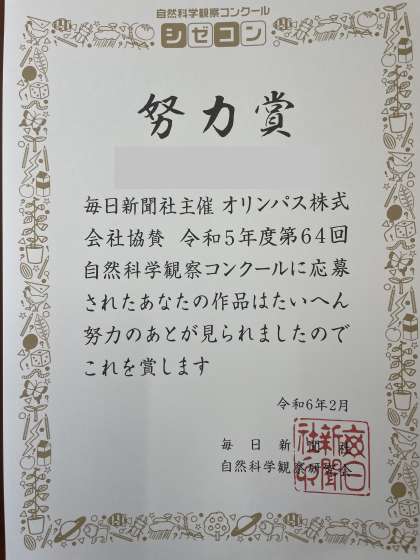 自然科学観察コンクール
シゼコン
努力賞
毎日新聞社主催 オリンパス株式
会社協賛 令和5年度第64回
自然科学観察コンクールに応募
されたあなたの作品はたいへん
努力のあとが見られましたので
これを賞します
令和6年2月
毎日新聞社
自然科学観察研究会